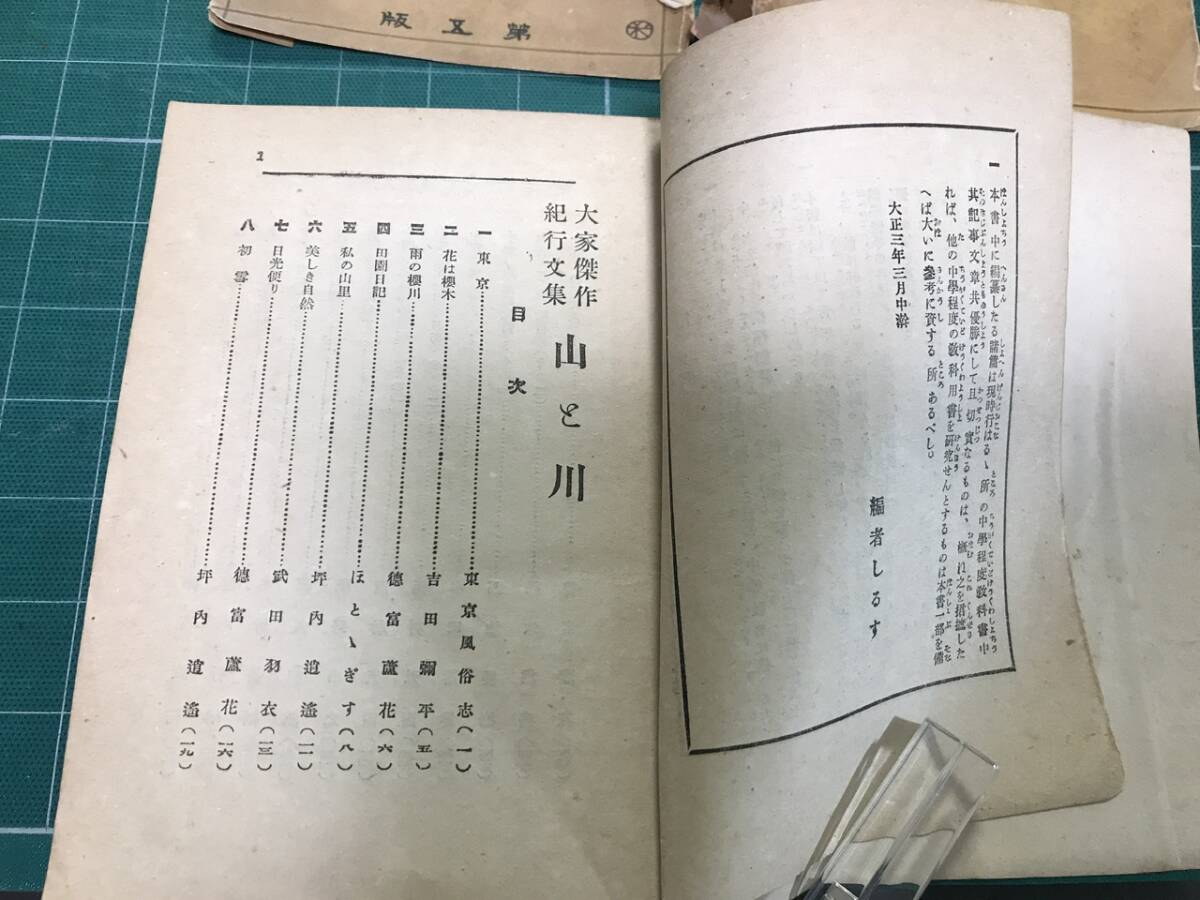 版五第
一 本書中に編纂したる諸篇は現時行はるゝ所の中學程度敎科書中
其記事文章共優勝にして且切實なるものは、概ね之を摺摭した
れば、他の中學程度の敎科用書を硏究せんとするものは本書一部を備
へば大いに參考に資する所あるべし。
大正三年三月中澣
編者しるす
1
大家傑作
紀行文集
山と川
目次
一 東京 東京風俗志(一)
二 花は櫻木 吉田彌平(五)
三 雨の櫻川
四 田園日記 德富蘆花(六)
五 私の山里 ほとゝぎす(八)
六 美しき自然 坪內逍遙(一一)
七 日光便り 武田羽衣(一三)
八 初雪 德富蘆花(一六)
坪內逍遙(一九)